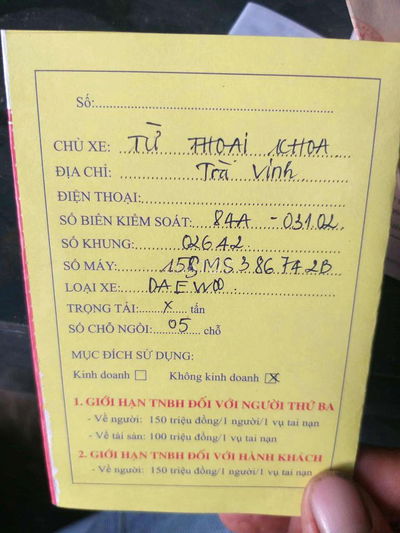 Số:
CHỦ XE: TỪ THOẠI KHOA
ĐỊA CHỈ: Trà Vinh
ĐIỆN THOẠI:
SỐ BIỂN KIỂM SOÁT: 84A - 031.02
SỐ KHUNG: 02642
SỐ MÁY:
LOẠI XE: DAEWOO
TRỌNG TẢI: x tấn
SỐ CHỖ NGỒI: 05 chỗ
MỤC ĐÍCH SỬ DỤNG:
Kinh doanh ☐ Không kinh doanh ☒
1. GIỚI HẠN TNBH ĐỐI VỚI NGƯỜI THỨ BA
- Về người: 150 triệu đồng/1 người/1 vụ tai nạn
- Về tài sản: 100 triệu đồng/1 vụ tai nạn
2. GIỚI HẠN TNBH ĐỐI VỚI HÀNH KHÁCH
- Về người: 150 triệu đồng/1 người/1 vụ tai nạn